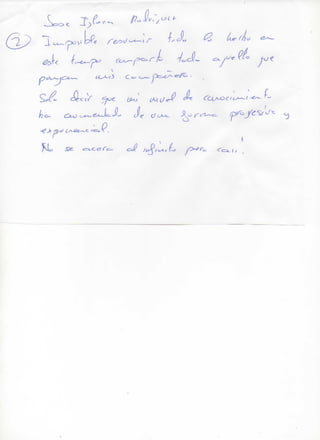 Jose Iglesia Rodríguez
② Imposible resumir todo lo hecho en
este tiempo comparto todo aquello que
pongan mis compañeros..
Solo decir que mi nivel de conocimiento
ha aumentado de una forma progresiva y
exponencial.
No se acerca al infinito pero casi!